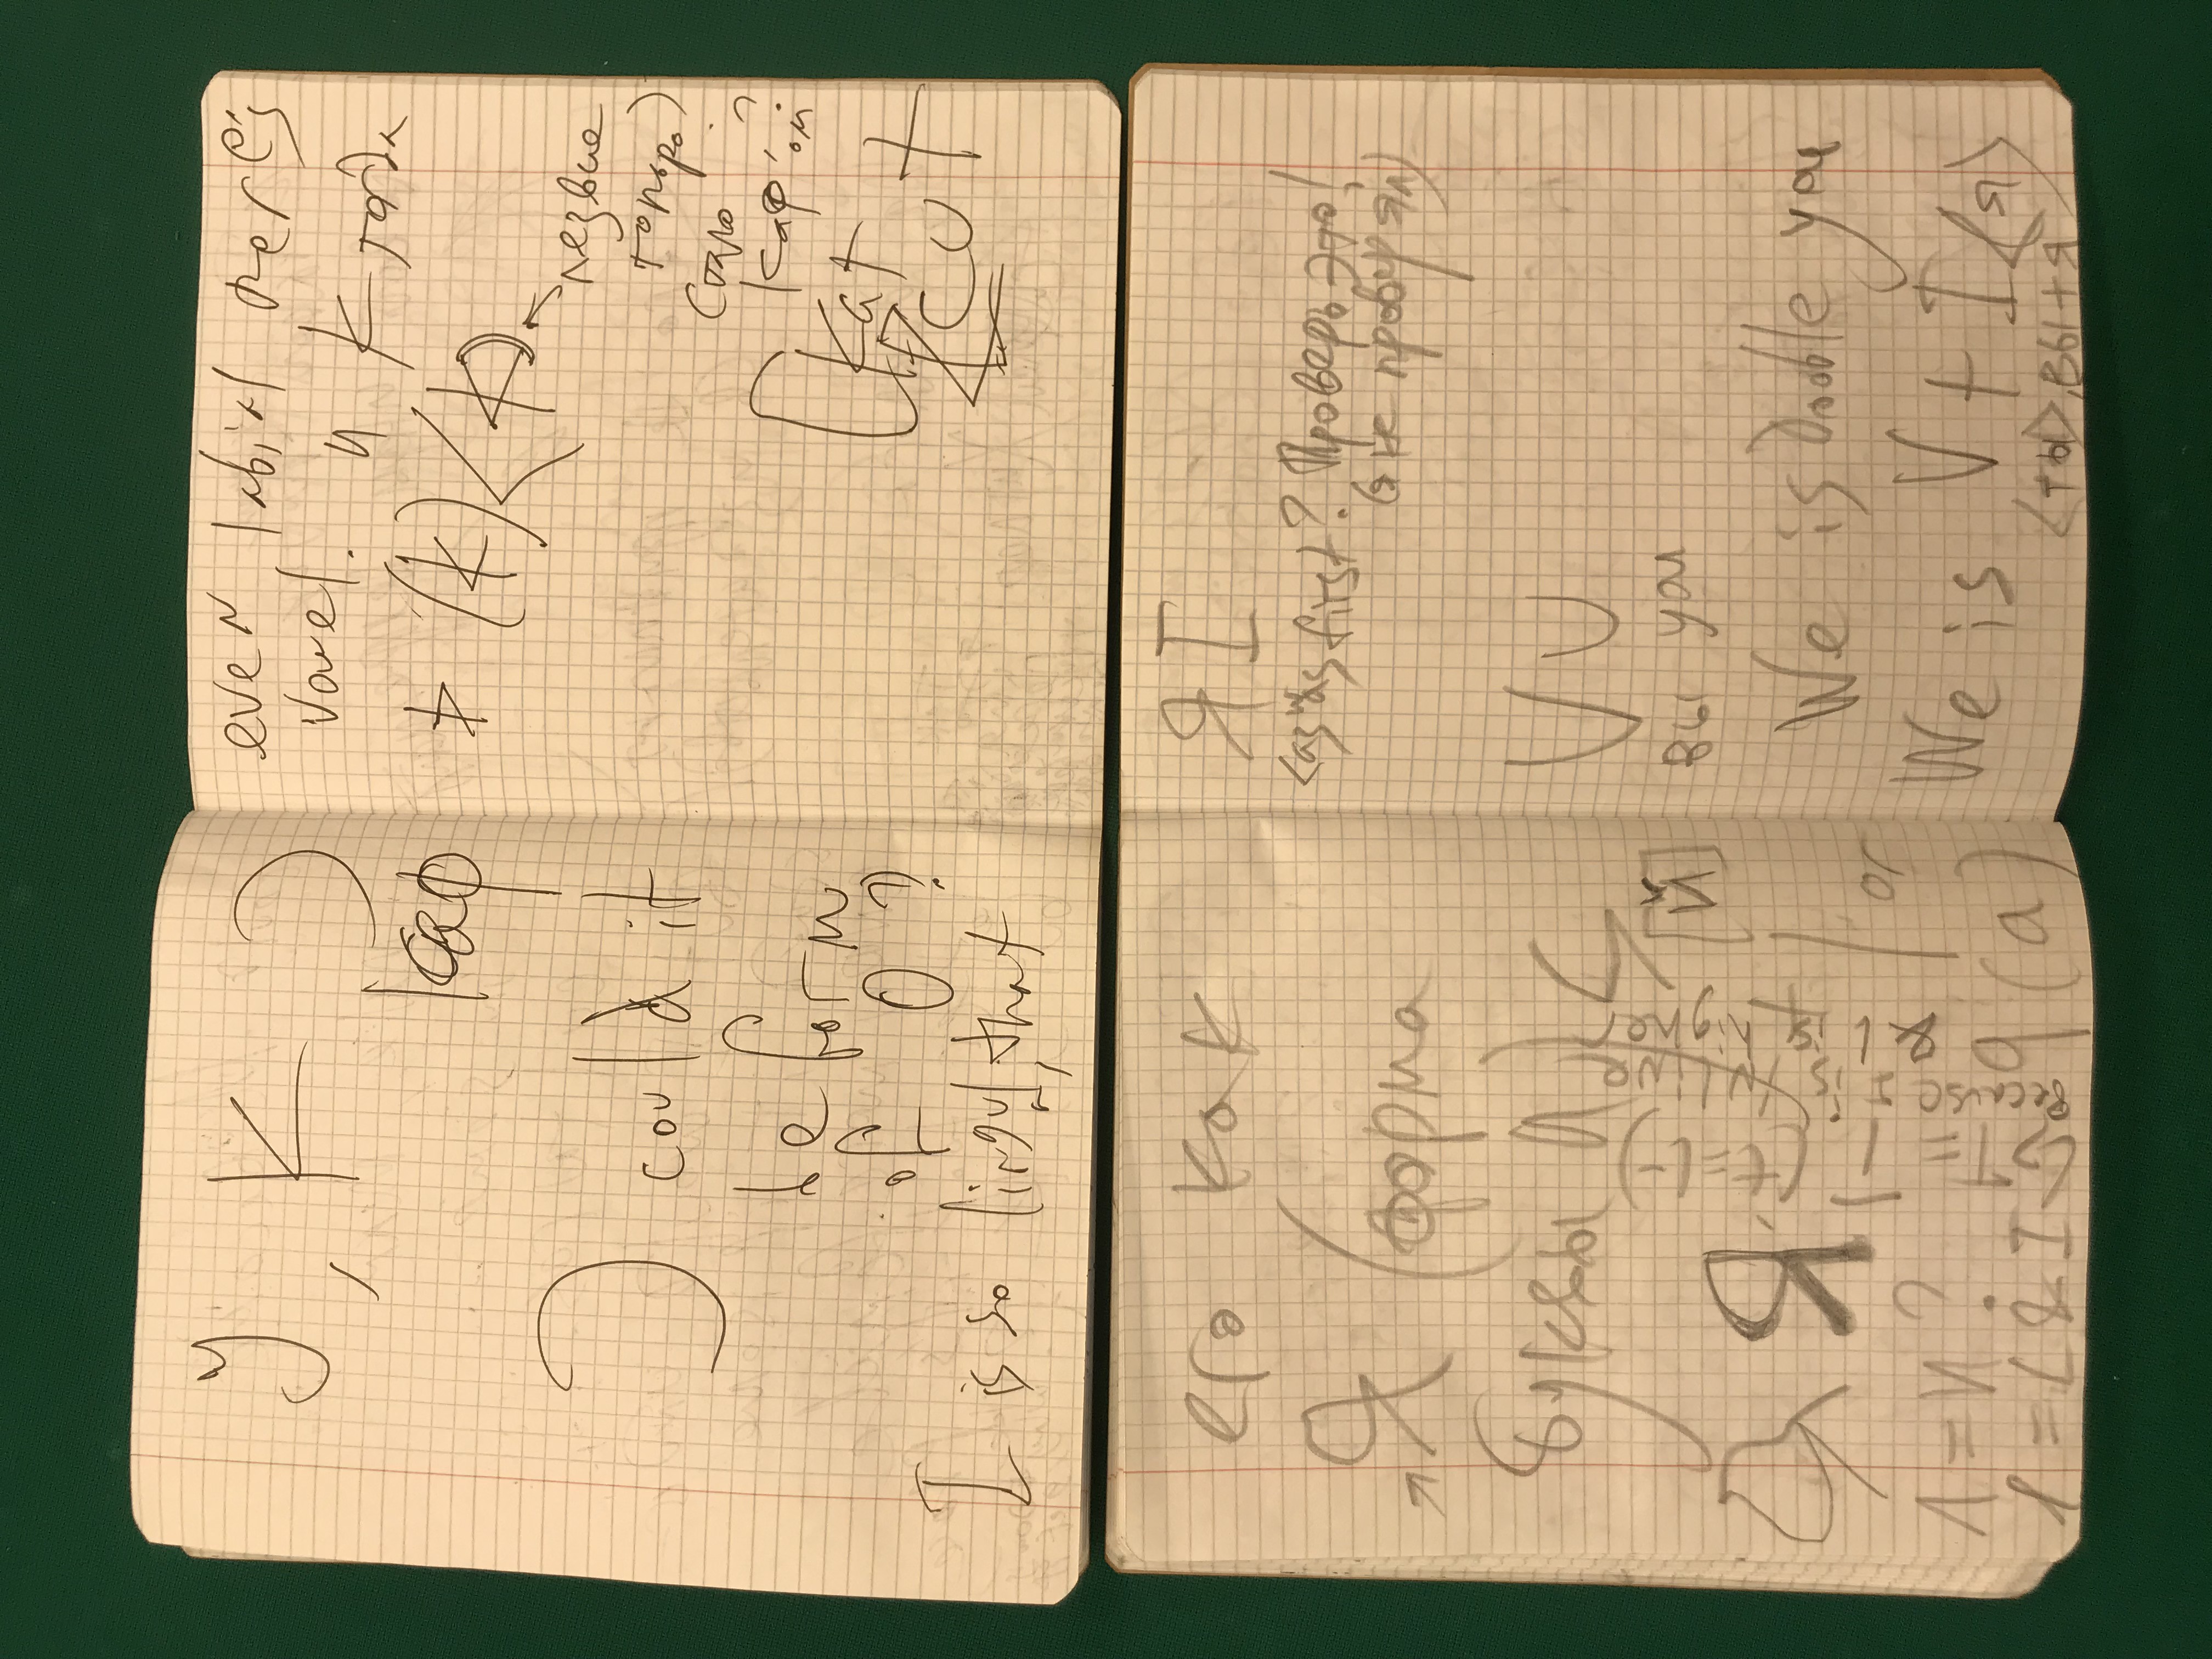 У, К
kaф
could it
be form
of O?
I is so lingual, that
even labial there's
vowel. И К тогда
(k) <
лезвие
топора)
стало
каф'ом?
kat
cut
его как
Я (форма
буквы А) <
[Й]
Я
Λ = И?
= L & I
(t=(-)
because I is INLINE
& L ist higher
| or
q (a)
Я I
<аз was first? Проверь это!
(я не проверял)
V U
вы you
We is double you
We is V + I <я>
<ты>, вы + я